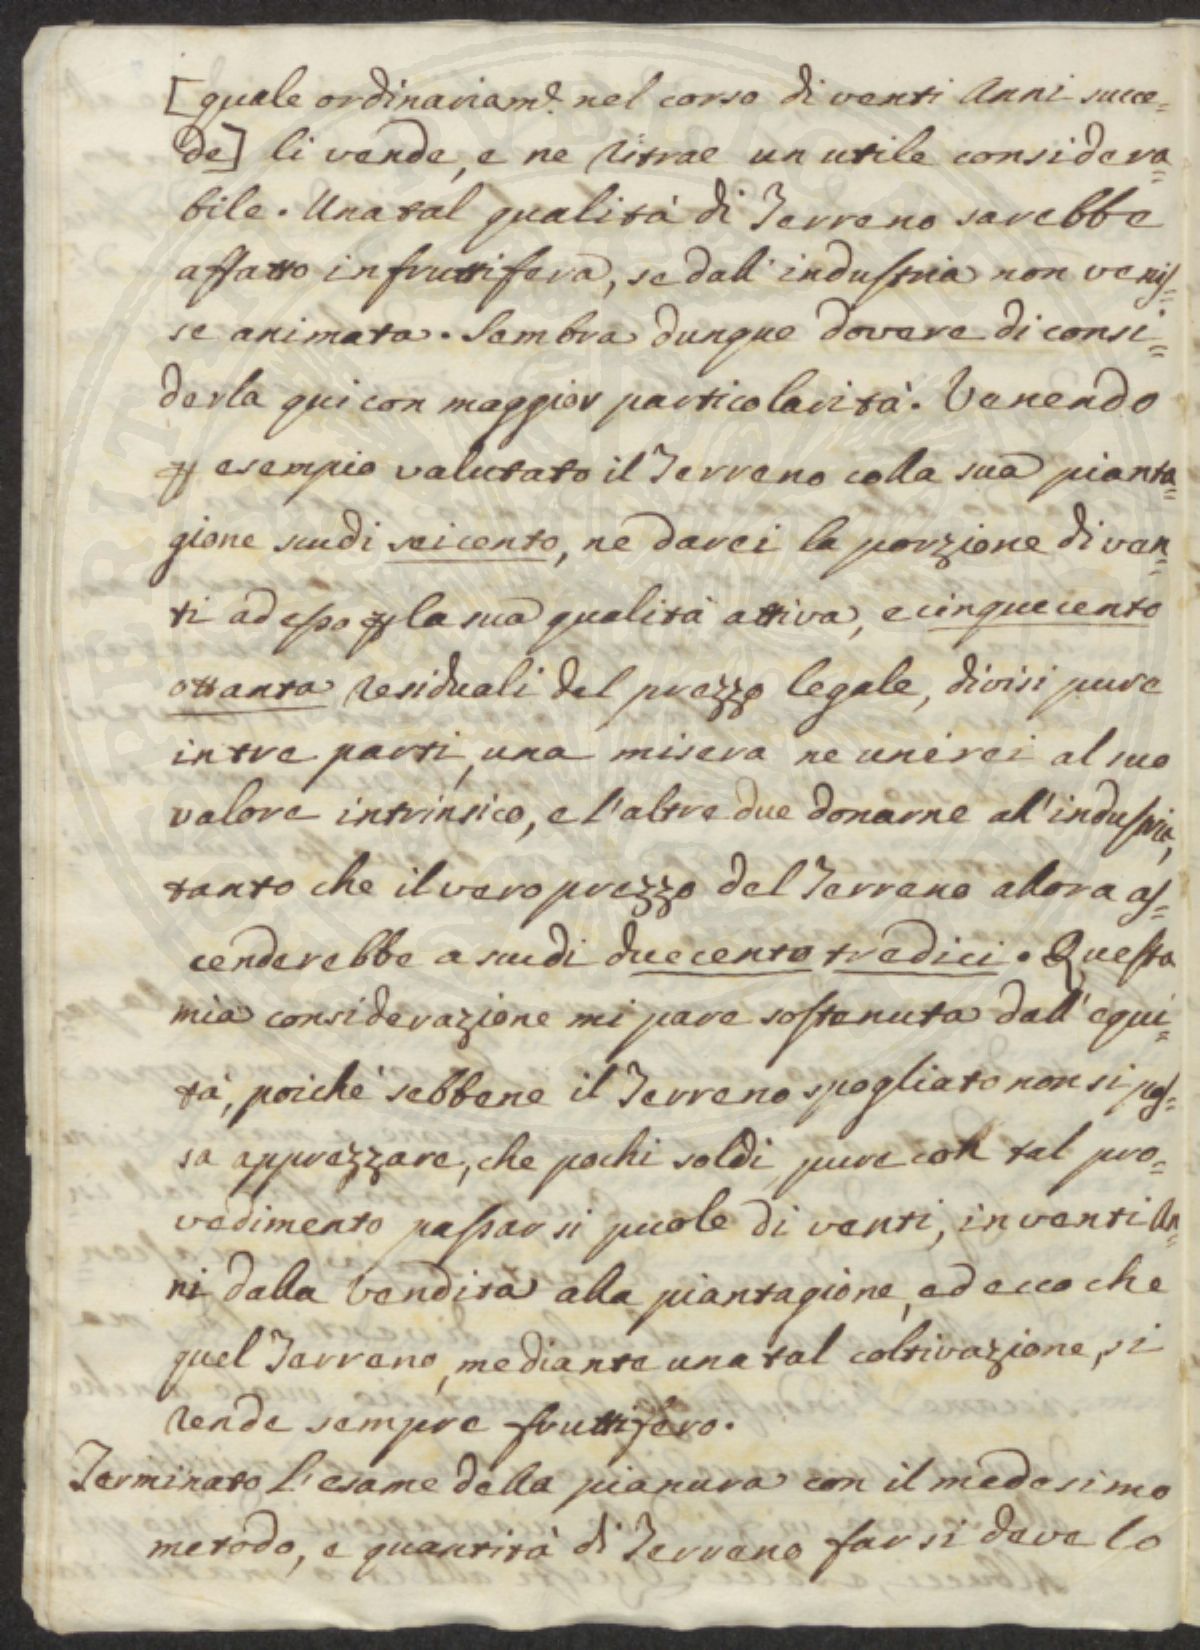 [quale ordinariam.e nel corso di venti Anni succe=
de] li vende, e ne ritrae un utile considera=
bile. Una tal qualità di Terreno sarebbe
affatto infruttifera, se dall'industria non venis=
se animata. Sembra dunque dovere di consi=
derla qui con maggior particolarità. Venendo
ꝑ esempio valutato il Terreno colla sua pianta=
gione scudi seicento, ne darei la porzione di ven=
ti ad esso ꝑ la sua qualità attiva, e cinquecento
ottanta residuali del prezzo legale, divisi pure
in tre parti, una misera ne unirei al suo
valore intrinsico, e l'altre due donarne all'industria,
tanto che il vero prezzo del Terreno allora as=
cenderebbe a scudi duecento tredici. Questa
mia considerazione mi pare sostenuta dall'equi=
tà, poichè sebbene il Terreno spogliato non si pos=
sa apprezzare, che pochi soldi, pure con tal pro=
vedimento passar si puole di venti, in venti An=
ni dalla vendita alla piantagione, ed ecco che
quel Terreno, mediante una tal coltivazione, si
rende sempre fruttifero.
Terminato l'esame della pianura con il medesimo
metodo, e quantità di Terreno farsi deve lo